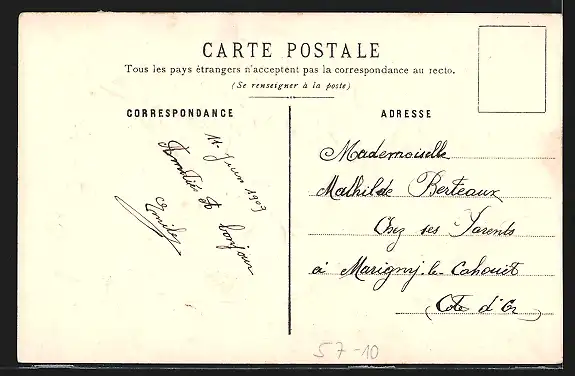 CARTE POSTALE
Tous les pays étrangers n'acceptent pas la correspondance au recto.
(Se renseigner à la poste)
CORRESPONDANCE
ADRESSE
11 Juin 1903
Amitiés et bonjour
Emile
Mademoiselle
Mathilde Berteaux
Chez ses Parents
à Marigny-le-Cahouet
(Côte d'Or)
57-10